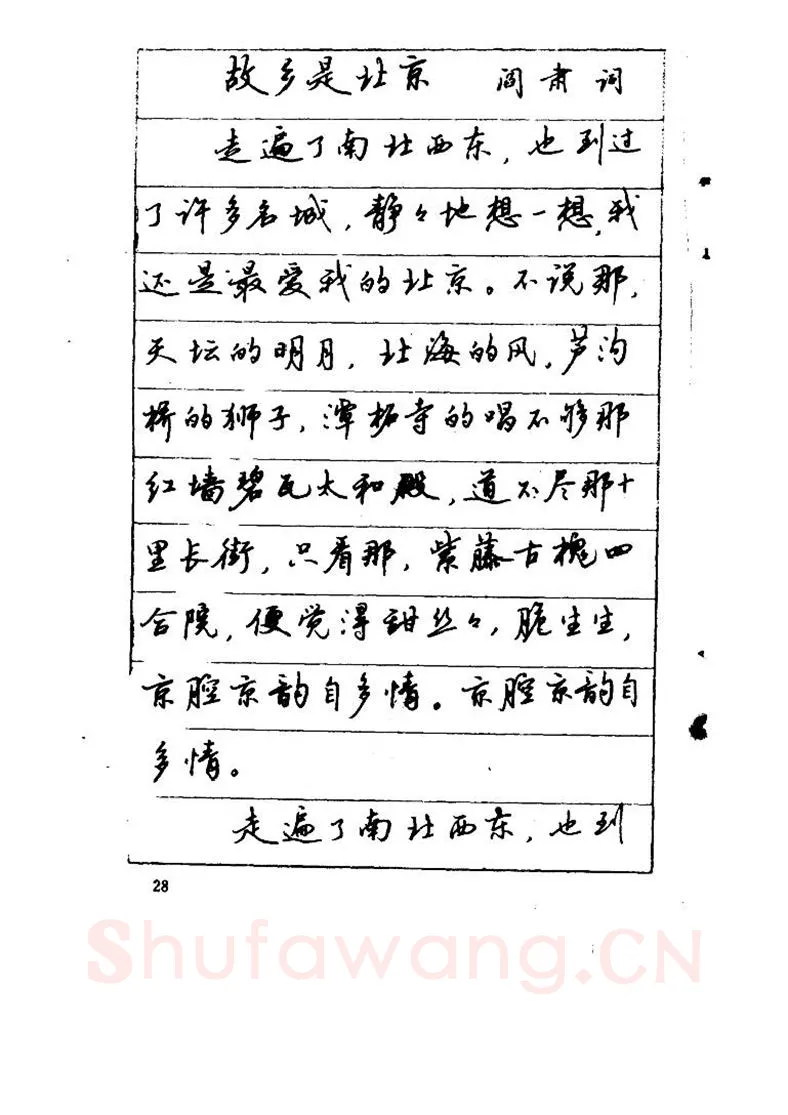 故乡是北京 阎肃词
走遍了南北西东，也到过
了许多名城，静々地想一想，我
还是最爱我的北京。不说那，
天坛的明月，北海的风，芦沟
桥的狮子，潭柘寺的唱不够那
红墙碧瓦太和殿，道不尽那十
里长街，只看那，紫藤古槐四
合院，便觉得甜丝々，脆生生，
京腔京韵自多情。京腔京韵自
多情。
走遍了南北西东，也到
28
Shufawang.CN